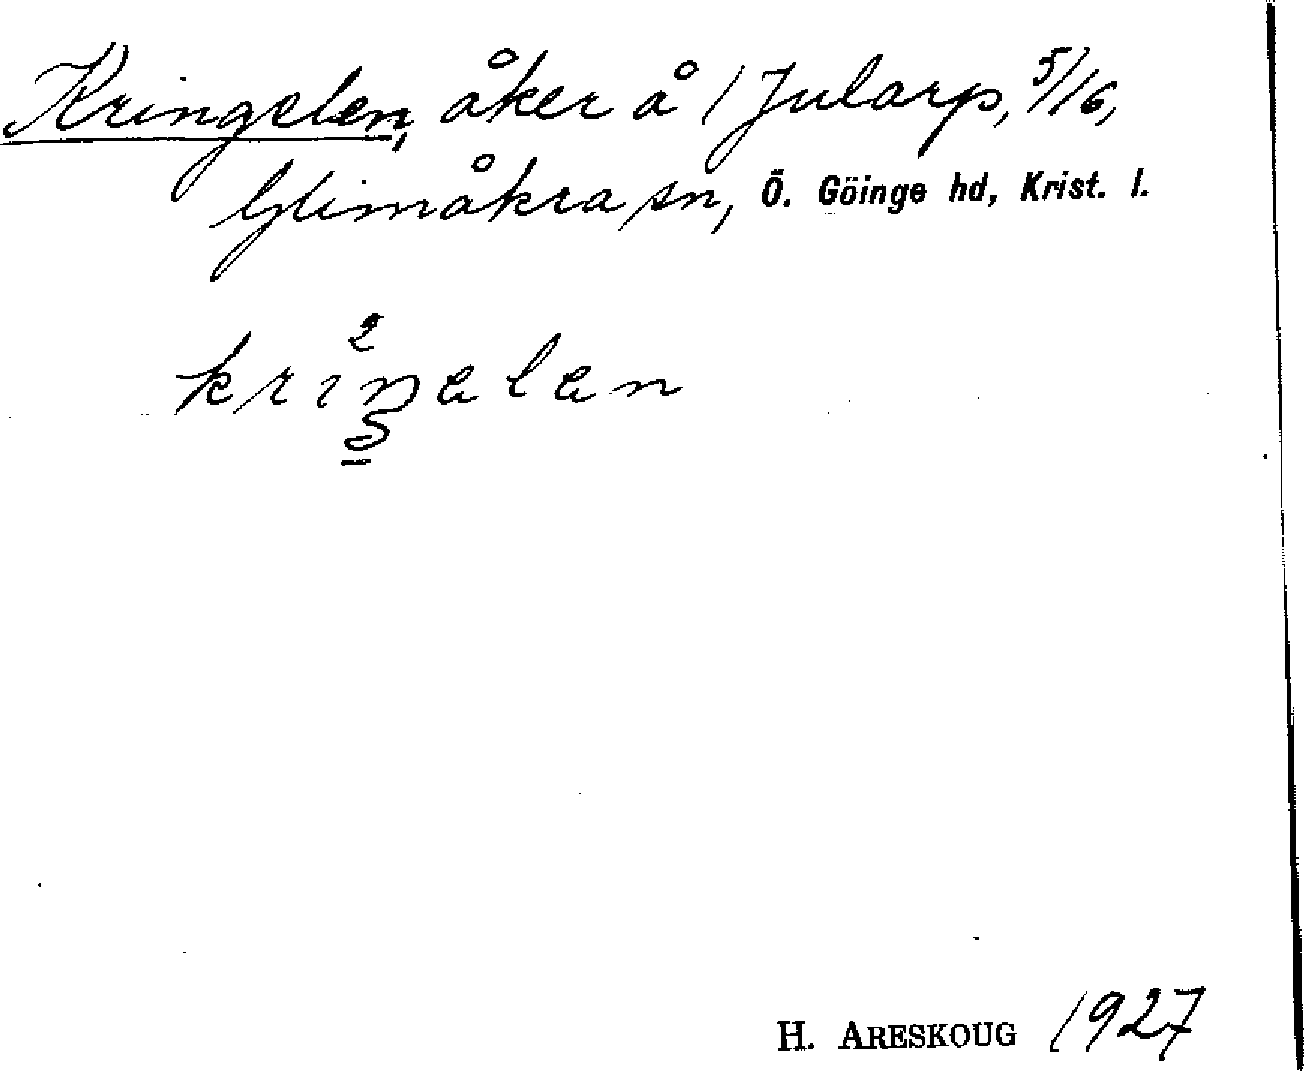 Kringelen, åker å 1 Jularp, 5/16,
Glimåkra sn, Ö. Göinge hd, Krist. l.
kriŋelen
H. ARESKOUG 1927